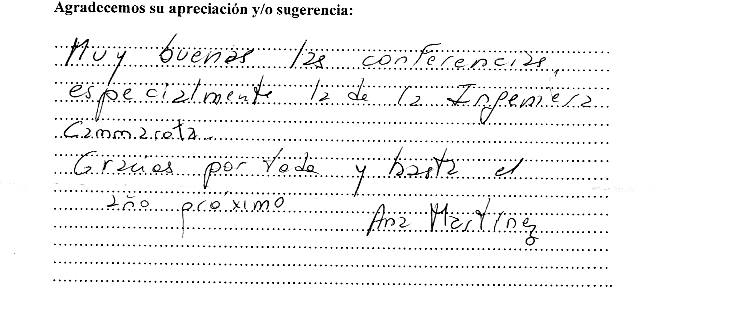 Agradecemos su apreciación y/o sugerencia:
Muy buenas las conferencias,
especialmente la de la Ingeniera
Cammarota.
Gracias por todo y hasta el
año próximo
Ana Martínez